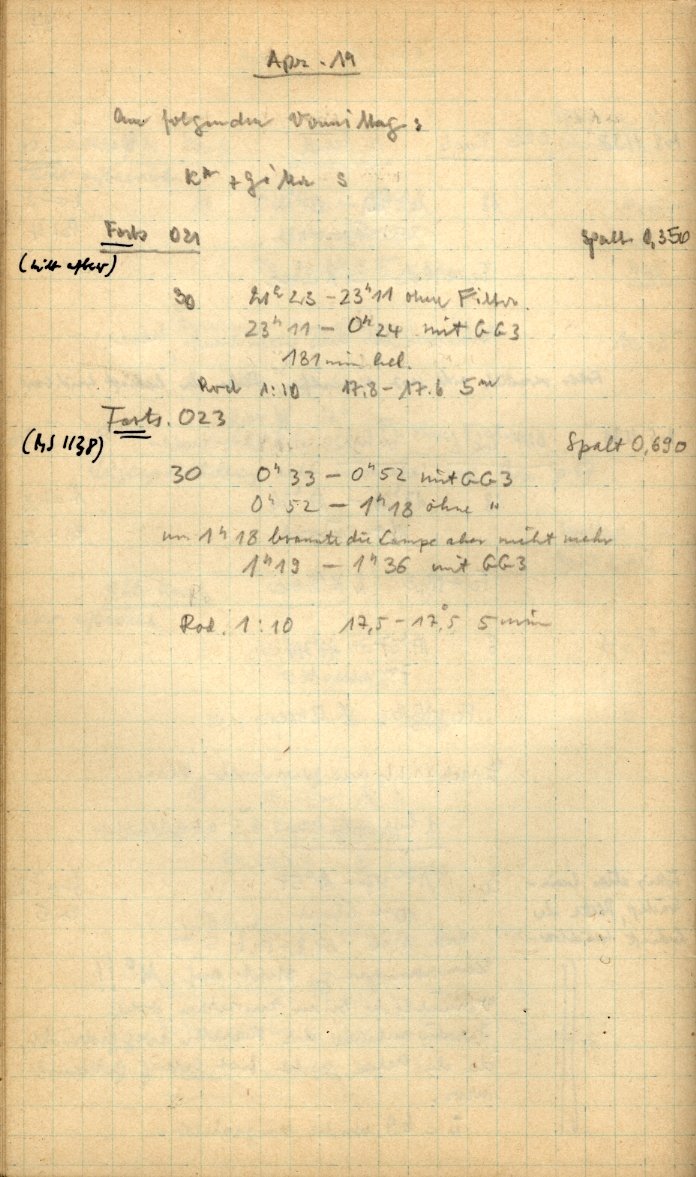 Apr. 19
Am folgenden Vormittag :
Forts 021
Spalt 0,350
30 21ʰ23 - 23ʰ11 ohne Filter
23ʰ11 - 0ʰ24 mit GG3
181 min bel.
Rod 1:10 17.8 - 17.6 5ᵐ
Forts. 023
(MS 1138)
Spalt 0,690
30 0ʰ33 - 0ʰ52 mit GG3
0ʰ52 - 1ʰ18 ohne "
um 1ʰ18 brannte die Lampe aber nicht mehr
1ʰ19 - 1ʰ36 mit GG3
Rod. 1:10 17,5 - 17°,5 5 min